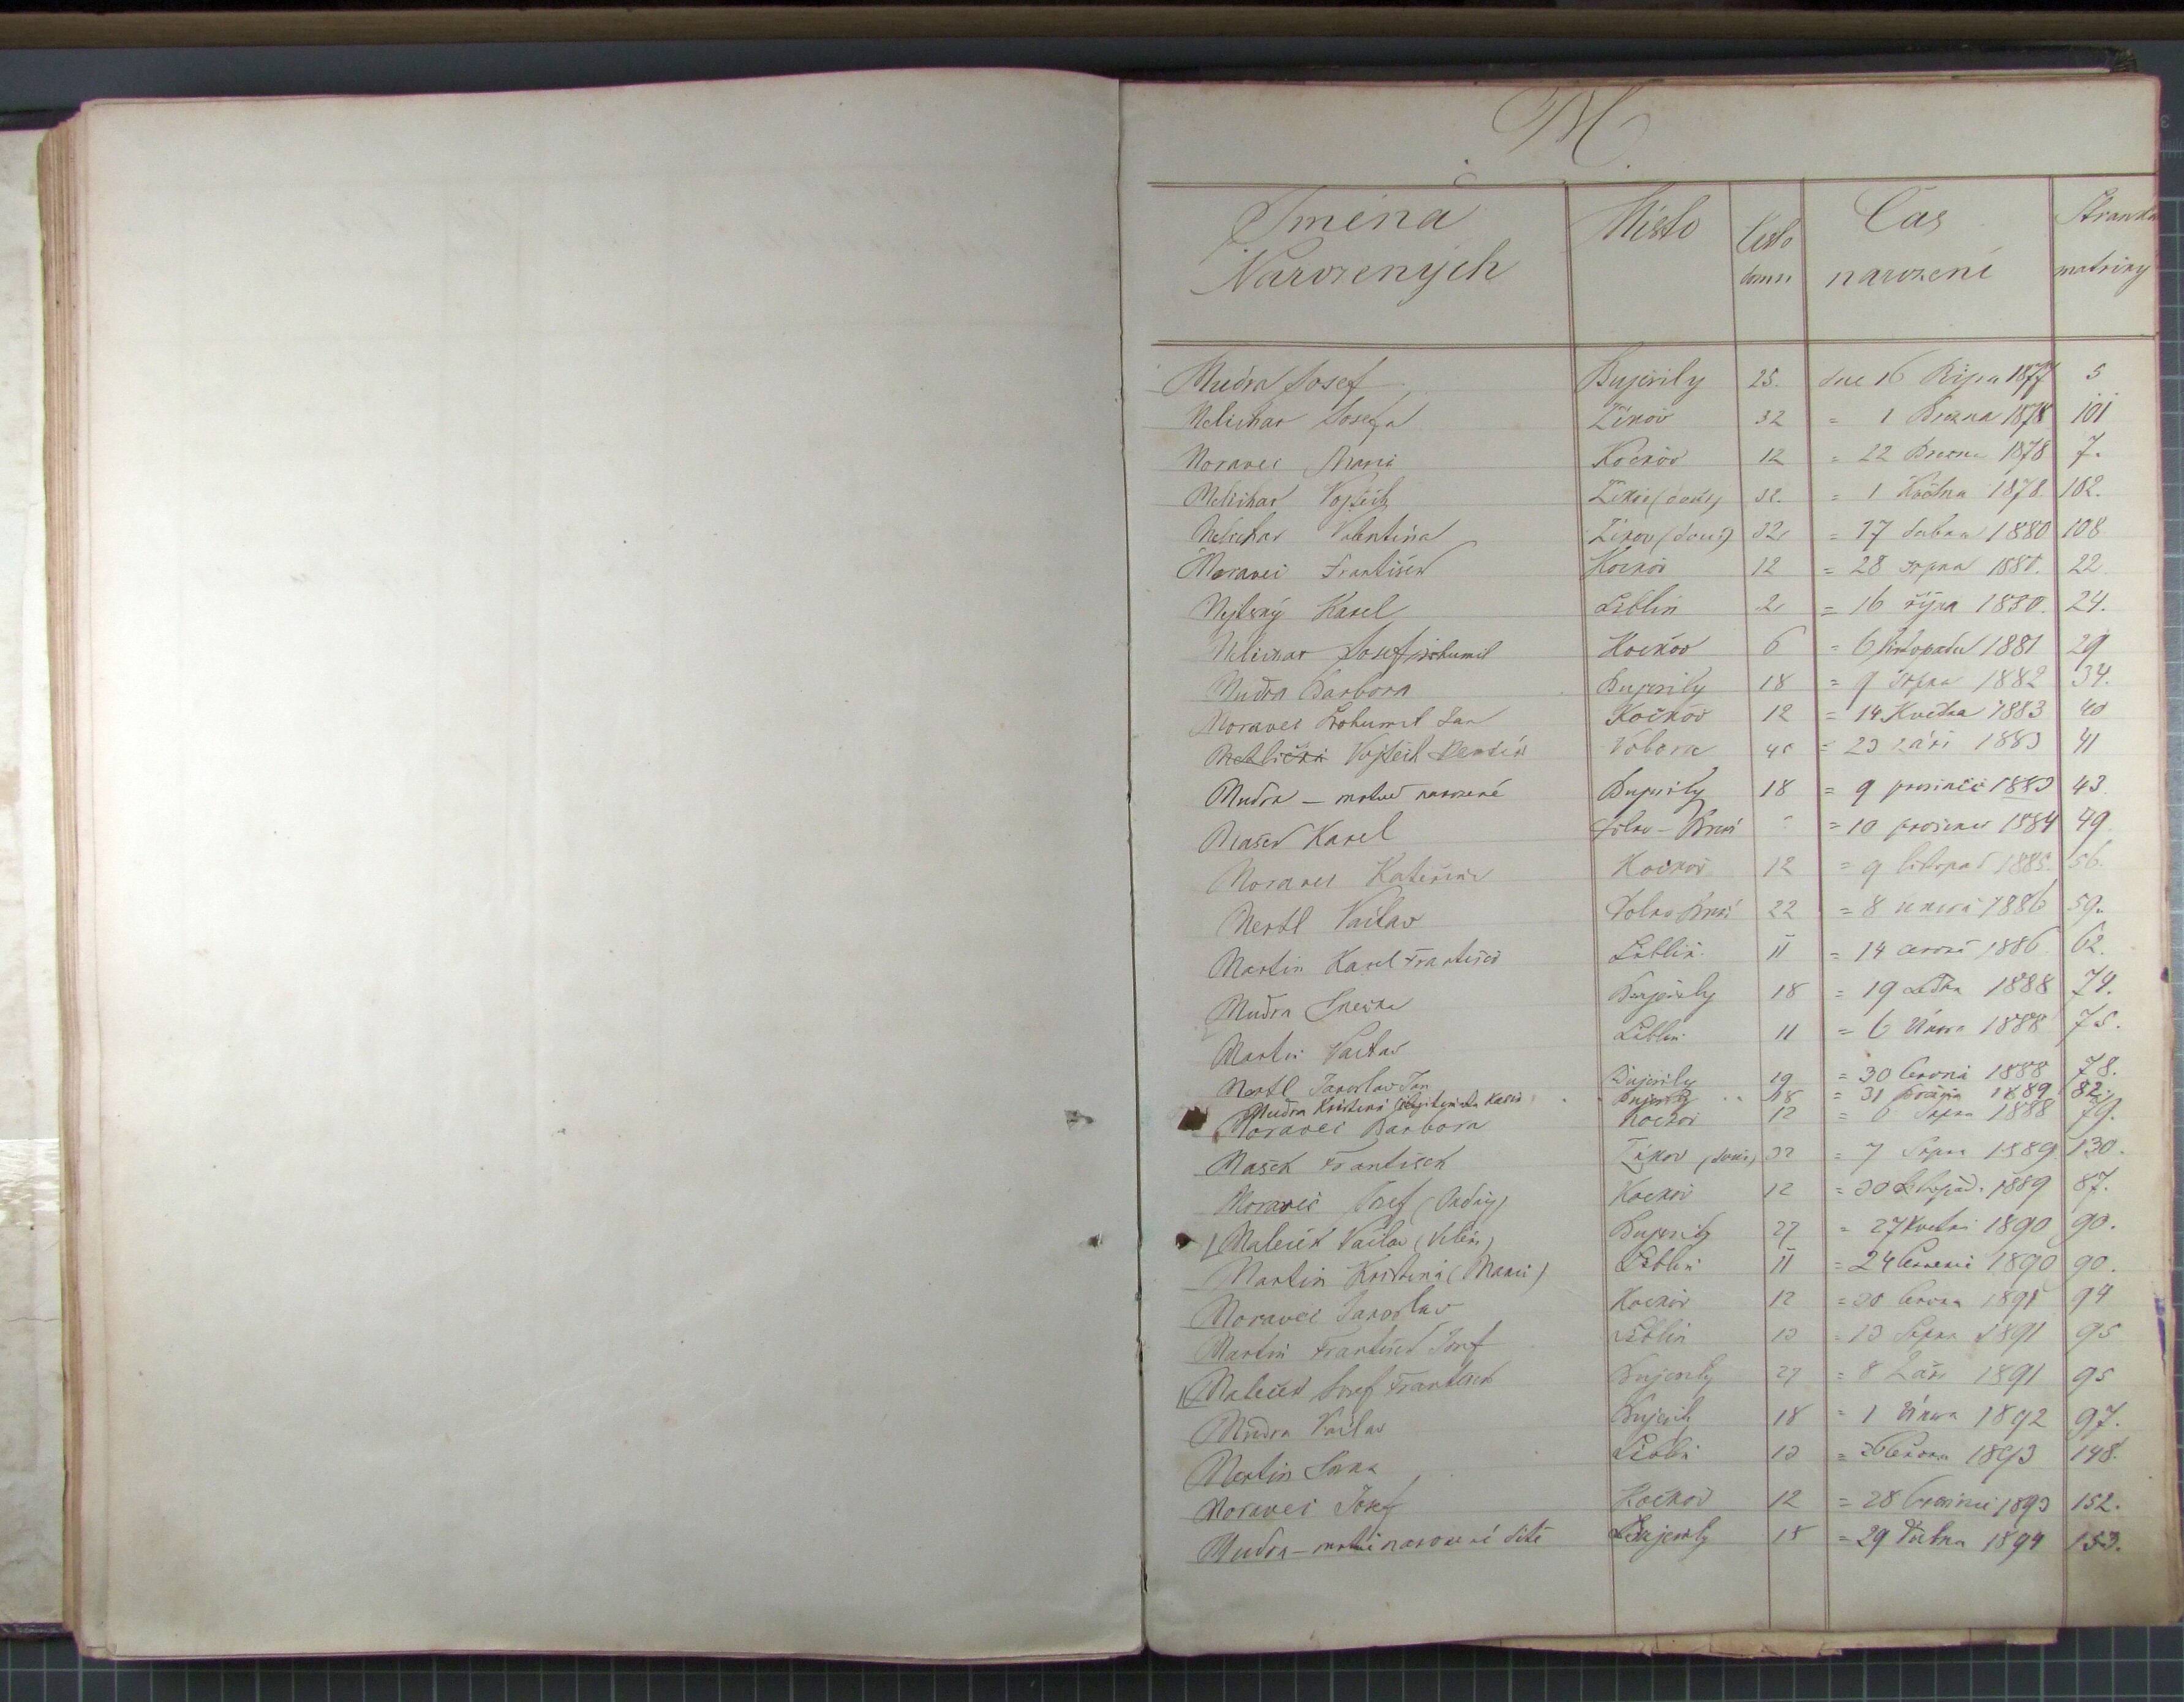 M.
Jména Narozených Místo Číslo domu Čas narození Stránka matriky
Mudra Josef Bujesily 25. dne 16 Října 1877 5
Melichar Josefa Žikov 32 = 1 Března 1878 101
Moravec Marie Kočkov 12 = 22 Března 1878 7.
Melichar Vojtěch Žikov 32. = 1 Května 1878 102.
Melichar Valentina Žikov 32 = 17 dubna 1880 108
Moravec František Kočkov 12 = 28 srpna 1880. 22
Karel Liblín 2 = 16 října 1880. 24.
Melichar Josef Bohumil Kočkov 6 = 6 listopadu 1881 29
Mudra Barbora Bujesily 18 = 9 Srpna 1882 34.
Moravec Bohumil Jan Kočkov 12 = 14 Května 1883 40
Metlička Vojtěch Vobora = 23 září 1883 41
Mudra — mrtvě narozené Bujesily 18 = 9 prosince 1883 43.
Mašek Karel = 10 prosince 1884 49
Moravec Kateřina Kočkov 12 = 9 listopad 1885. 56.
Mertl Václav 22 = 8 února 1886 59.
Martin Karel František Liblín 11 = 14 1886. 62.
Mudra Anežka Bujesily 18 = 19 Ledna 1888 74.
Martin Václav Liblín 11 = 6 Února 1888 75.
Mertl Jaroslav Jan Bujesily 19 = 30 1888 78.
Mudra Kristina Bujesily 18 = 31 1889 82.
Moravec Barbora Kočkov 12 = 6 Srpna 1888 79.
Mašek František Žikov 32 = 7 Srpna 1889 130.
Moravec Josef (Ondřej) Kočkov 12 = 30 Listopad. 1889 87.
Maleček Václav Bujesily 27 = 27 Květni 1890 90.
Martin Kristina (Marie) Liblín 11 = 24 1890 90.
Moravec Jaroslav Kočkov 12 = 1891 94
Martin František Josef Liblín 13 = 13 Srpna 1891 95
Maleček Josef František Bujesily 27 = 8 Září 1891 95
Mudra Václav Bujesily 18 = 1 Února 1892 97.
Martin Anna Liblín 13 = 1893 148.
Moravec Josef Kočkov 12 = 28 1893 152.
Mudra — mrtvě narozené dítě Bujesily 18 = 29 1894 153.